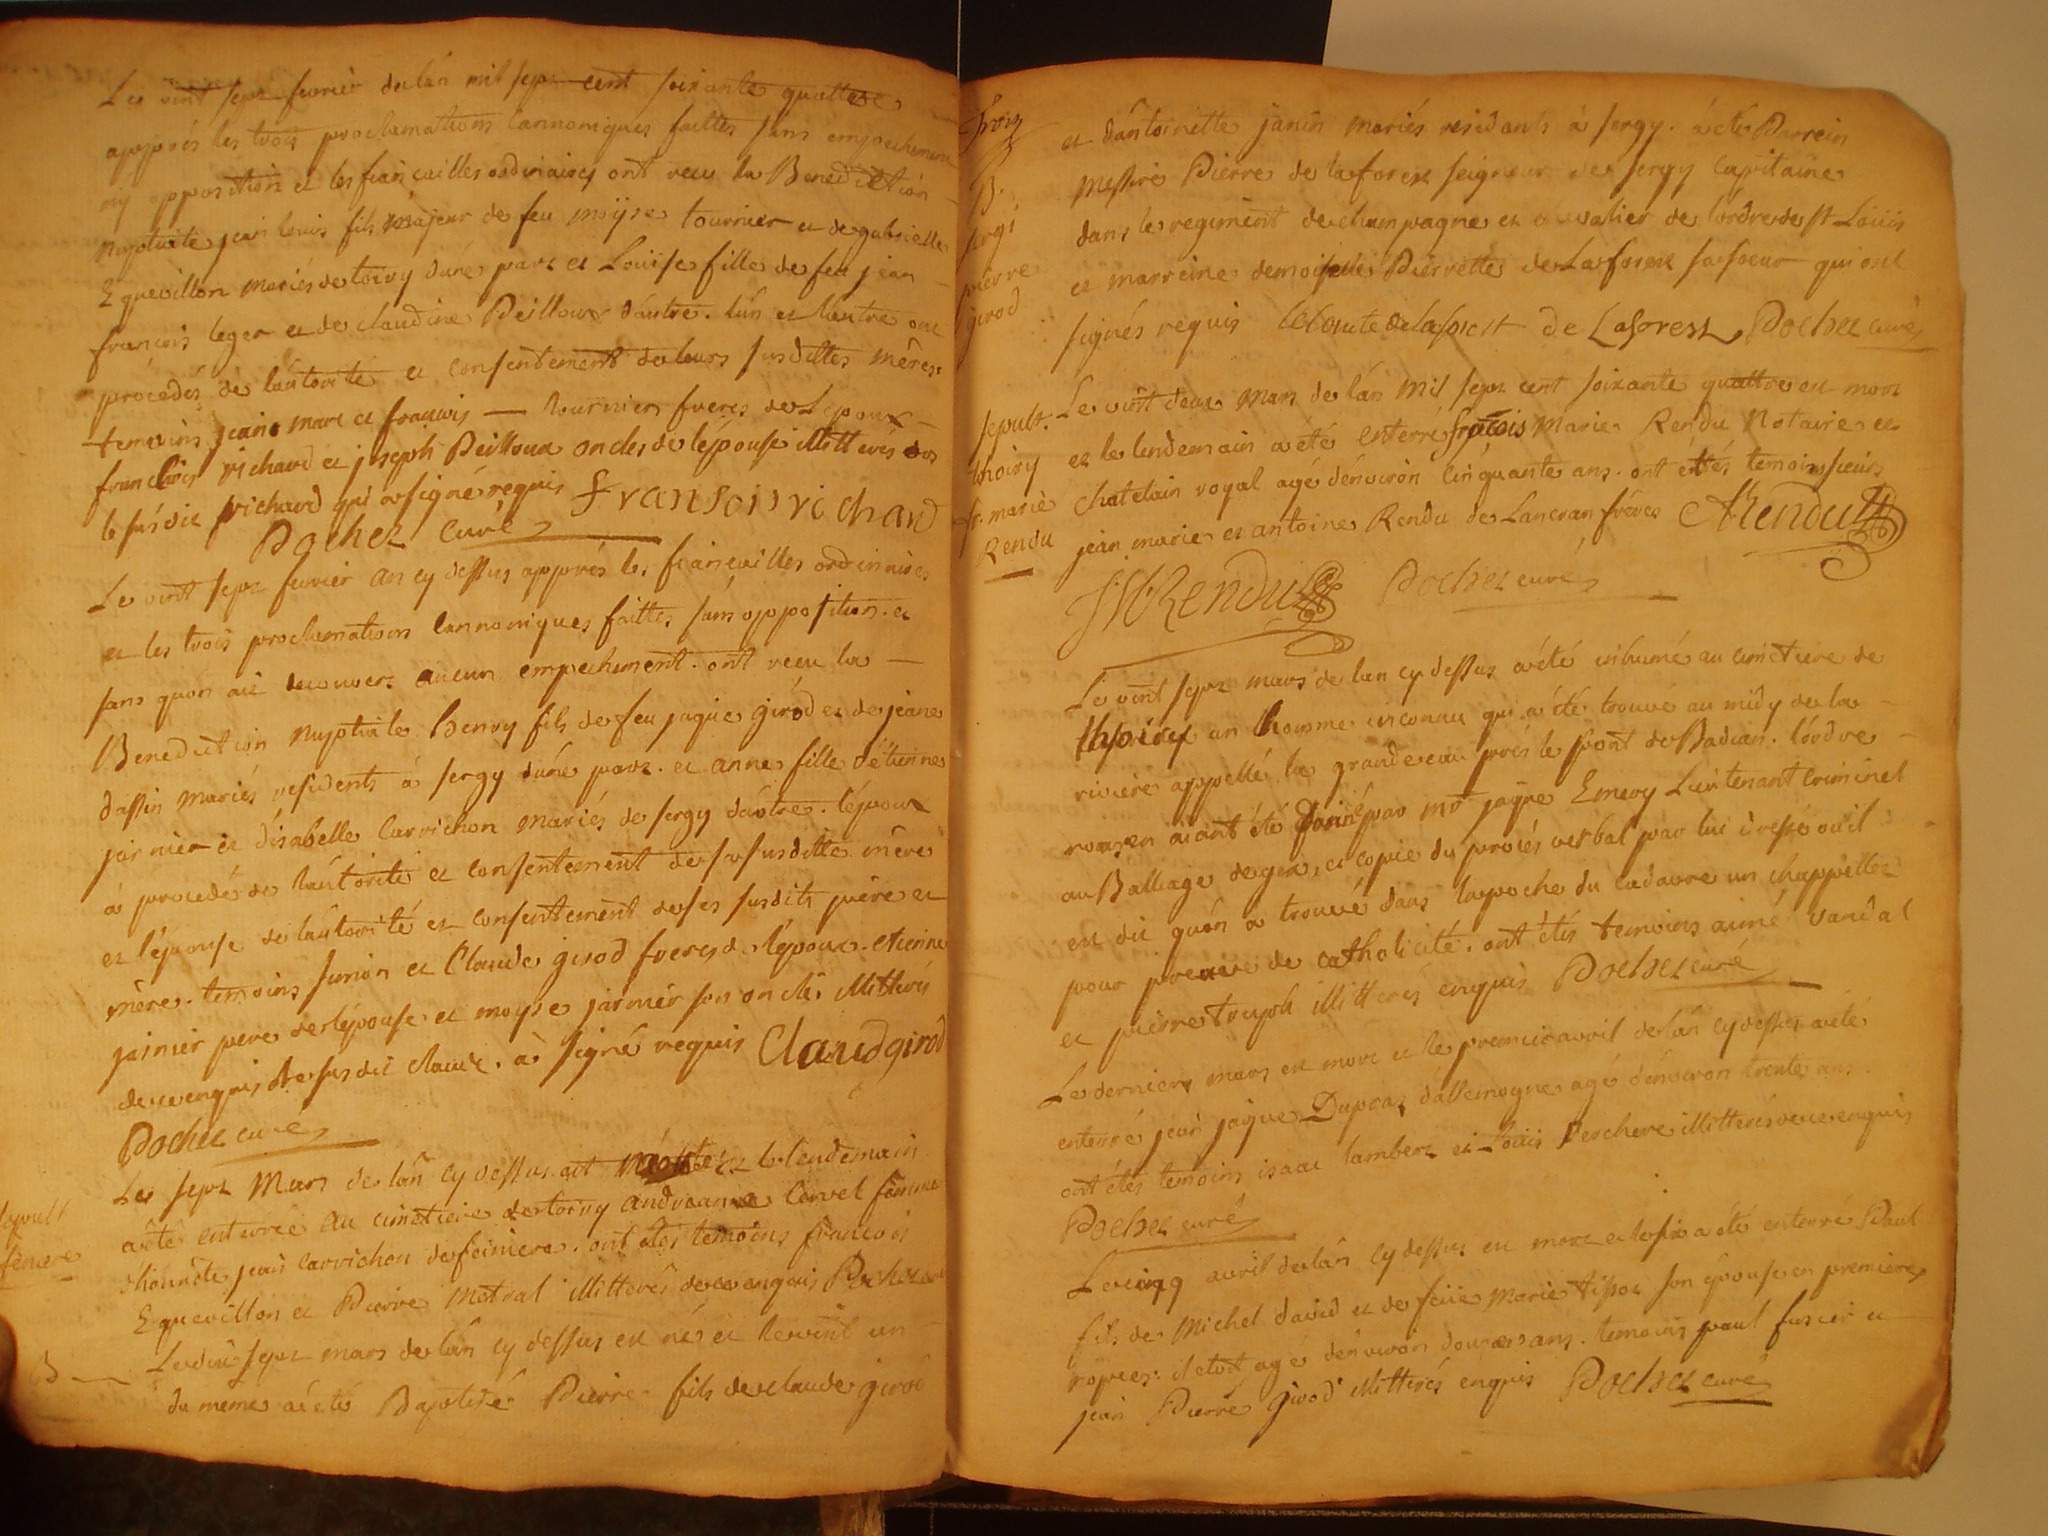 Le vint sept fevrier de lan mil sept cent soixante quattre
apprés les trois proclamations cannoniques faittes sans empechement
ny opposition et les fiançailles ordinaires ont recu la Benediction
nuptiale jean louis fils majeur de feu moÿse tournier et de gabrielle
Equevillon mariés de toiry dúne part et Loüise fille de feu jean
françois leger et de claudine Peilloux dáutre. lún et láutre ont
procédés de láutorité et consentement de leurs susdittes mères.
temoins jean marc et francois — tournier freres de lépoux
francois richard et joseph Peilloux oncles de lépouse illitterés
le súsdit richard qui a signé requis Fransois richard
Pochet curé
Le vint sept fevrier an cy dessus apprés les fiançailles ordinaires
et les trois proclamations cannoniques faittes sans opposition et
sans quon ait decouvert aucun empechement. ont recu la —
Benediction nuptiale henry fils de feu jaque girod et de jeane
dassin mariés residents à sergy dúne part. et anne fille détienne
jarnier et disabelle carrichon mariés de sergy dáutre. lépoux
à procedé de láutorité et consentement de sa susditte mère
et lépouse de láutorité et consentement de ses susdits père et
mère. temoins simon et Claude girod freres de lépoux. etienne
jarnier pere de lépouse et moyse jarnier son oncle. illitterés
de ce enquis le susdit claude. à signé requis Claud girod
Pochet curé
Le sept Mars de lán cy dessus et le lendemain
aété enterrée au cimetiere de toiry andreanne Corvet femme
dhonnéte jean carrichon de feiniere. ont étés temoins francois
Equevillon et Pierre Metral illitterés de ce enquis Pochet curé
sepult
feniere
Le dix sept mars de lán cy dessus est né et le vint un
du même aété Baptisé Pierre fils de claude girod
B
Thoiry
B.
sergi
pierre
girod
et dántoinette janin mariés residants à sergy. à été Parrein
Messire Pierre de laforest seigneur de sergy capitaine
dans le regiment de champagne et chevalier de lórdre de st Loüis
et marreine demoiselle Pierrette de Laforest sa soeur qui ont
signés requis le Comte de laforest de Laforest Pochet curé
sepult.
thoiry
fr. marie
Rendu
Le vint deux Mars de lán mil sept cent soixante quattre est mort
et le lendemain a été enterré françois Marie Rendu Notaire et
chatelain royal agé dénviron cinquante ans. ont étés temoins sieurs
jean marie et antoine Rendu de Lancran fréres ARendu
JMRendu Pochet curé
Le vint sept mars de lan cy dessus aété inhumé au cimetiere de
thoiry un homme inconnu qui a été trouvé au midy de la
riviere appellé la grande eau prés le pont de Badian. lórdre
nous en aiant été donné par mr jaque Emery Lieutenant criminel
au Balliage de gex, et copie du procés verbal par lui dressé où il
est dit quón a trouvé dans la poche du cadavre un chappellet
pour preuve de catholicité. ont étés temoins aimé vandal
et pierre toupok illitterés enquis Pochet curé
Le dernier mars est mort et le premier avril de lán cy dessus aété
enterré jean jaque Dupraz dállemogne agé dénviron trente ans.
ont étés temoins isaac lambert et Loüis Perchere illitterés de ce enquis
Pochet curé
Le cinq avril de lán cy dessus est mort et le six a été enterré Paul
fils de Michel david et de feüe Marie tissot son épouse en premieres
nopces. il etoit agé dénviron douze ans. temoins paul fusier et
jean Pierre Girod illitterés enquis Pochet curé